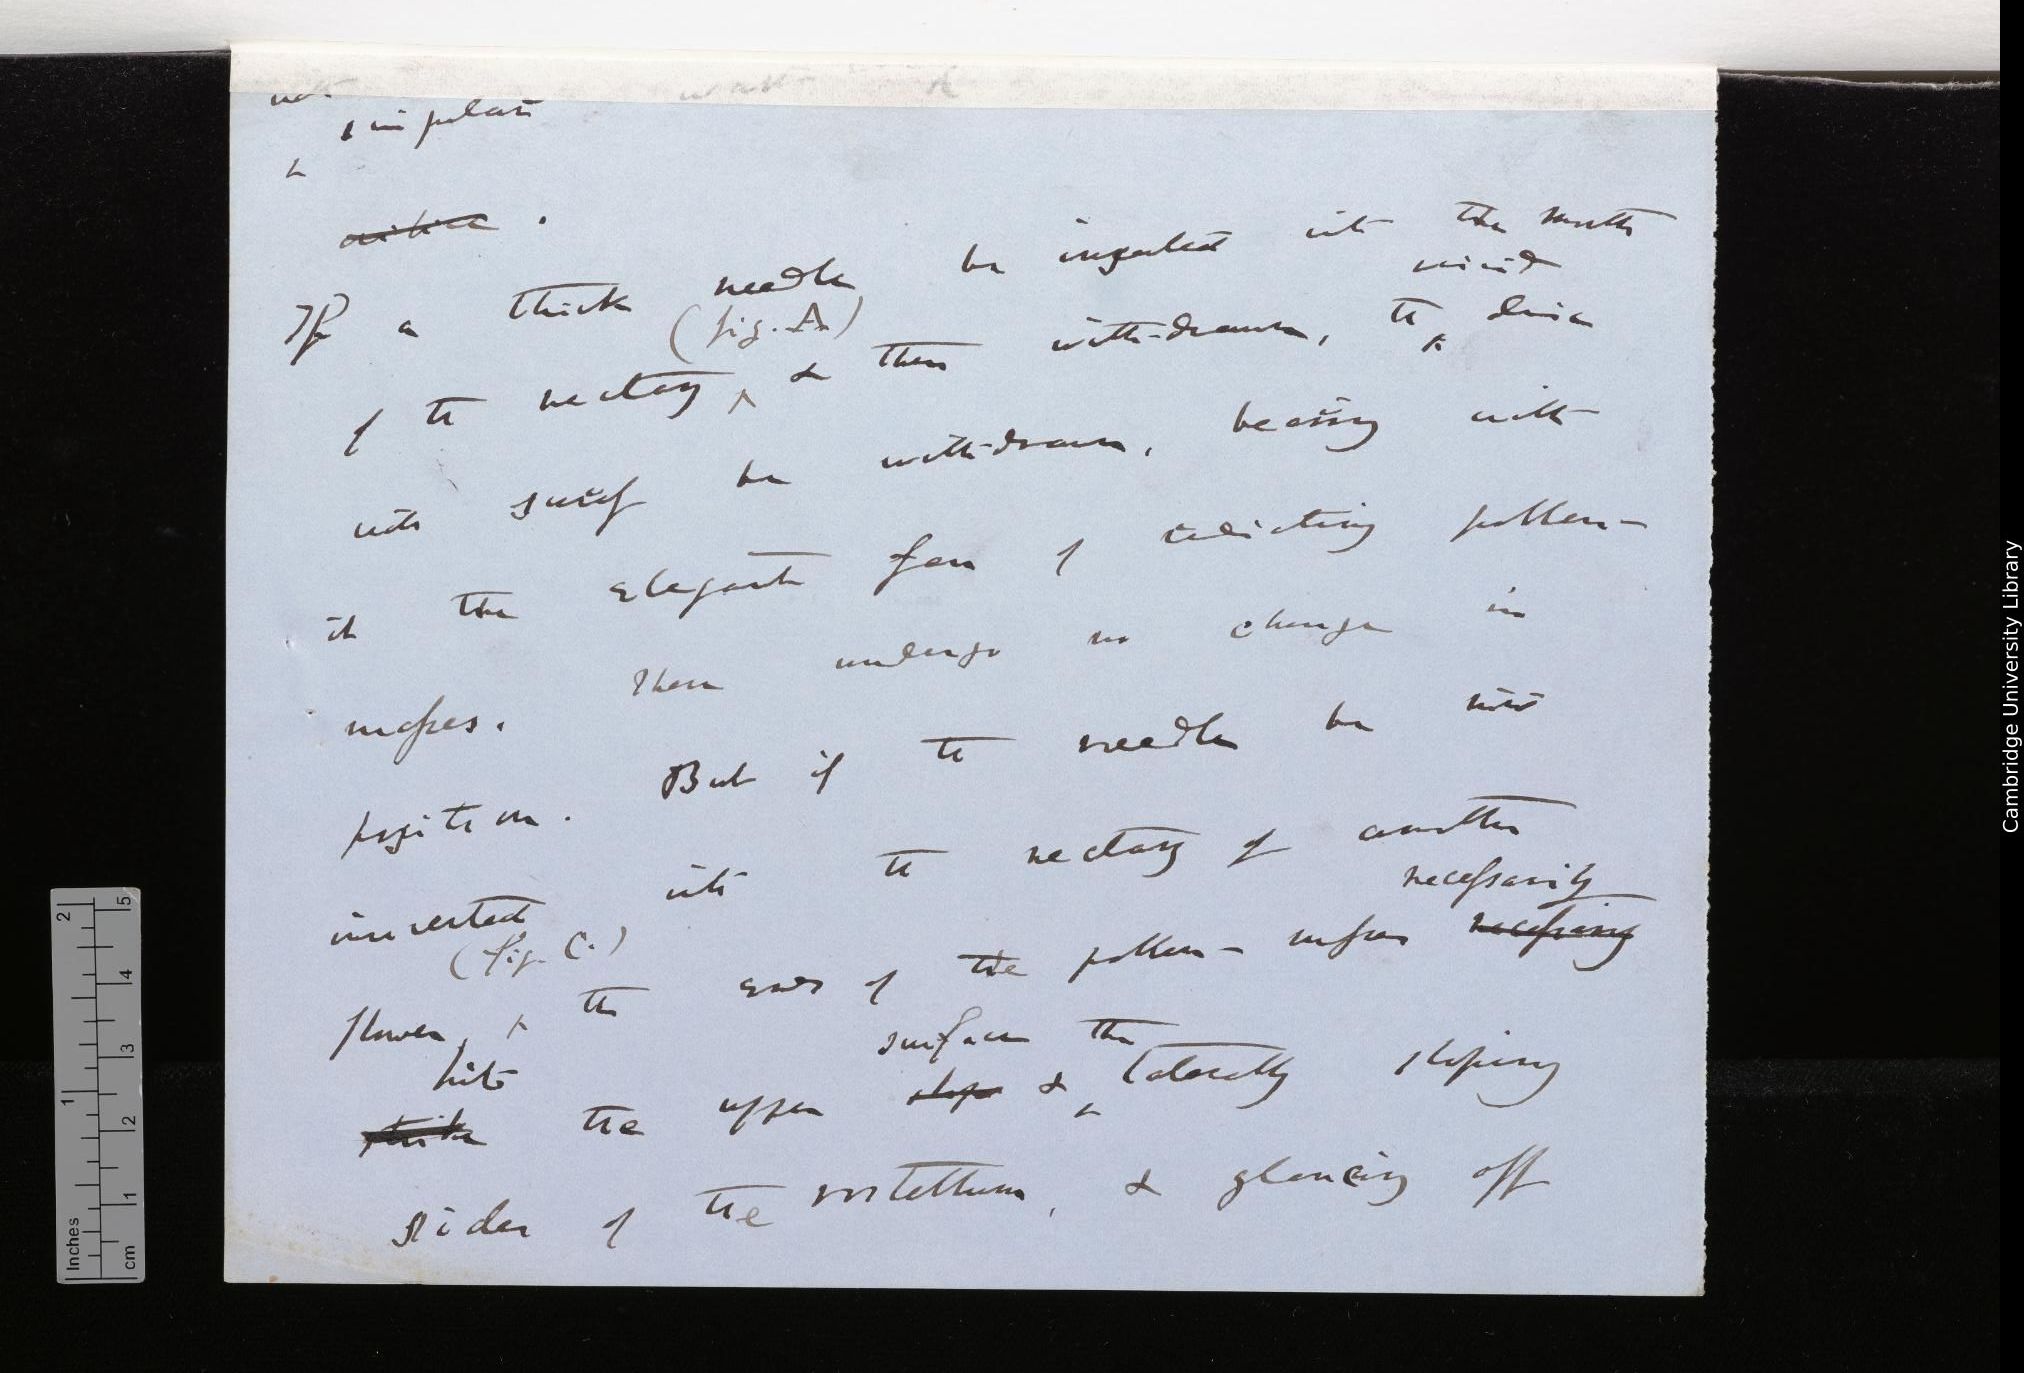 singular
orifice.
If a thick needle be inserted into the mouth
of the nectary (fig. A) & then with-drawn, the viscid disc
will surely be with-drawn, bearing with
it the elegant fan of radiating pollen-
masses. These undergo no change in
position. But if the needle be now
inserted into the nectary of another
flower (fig. C.), the ends of the pollen-masses necessarily necessarily
strike hits the upper slope surface & the laterally sloping
sides of the rostellum, & glancing off
Inches 1 2
cm 1 2 3 4 5
Cambridge University Library